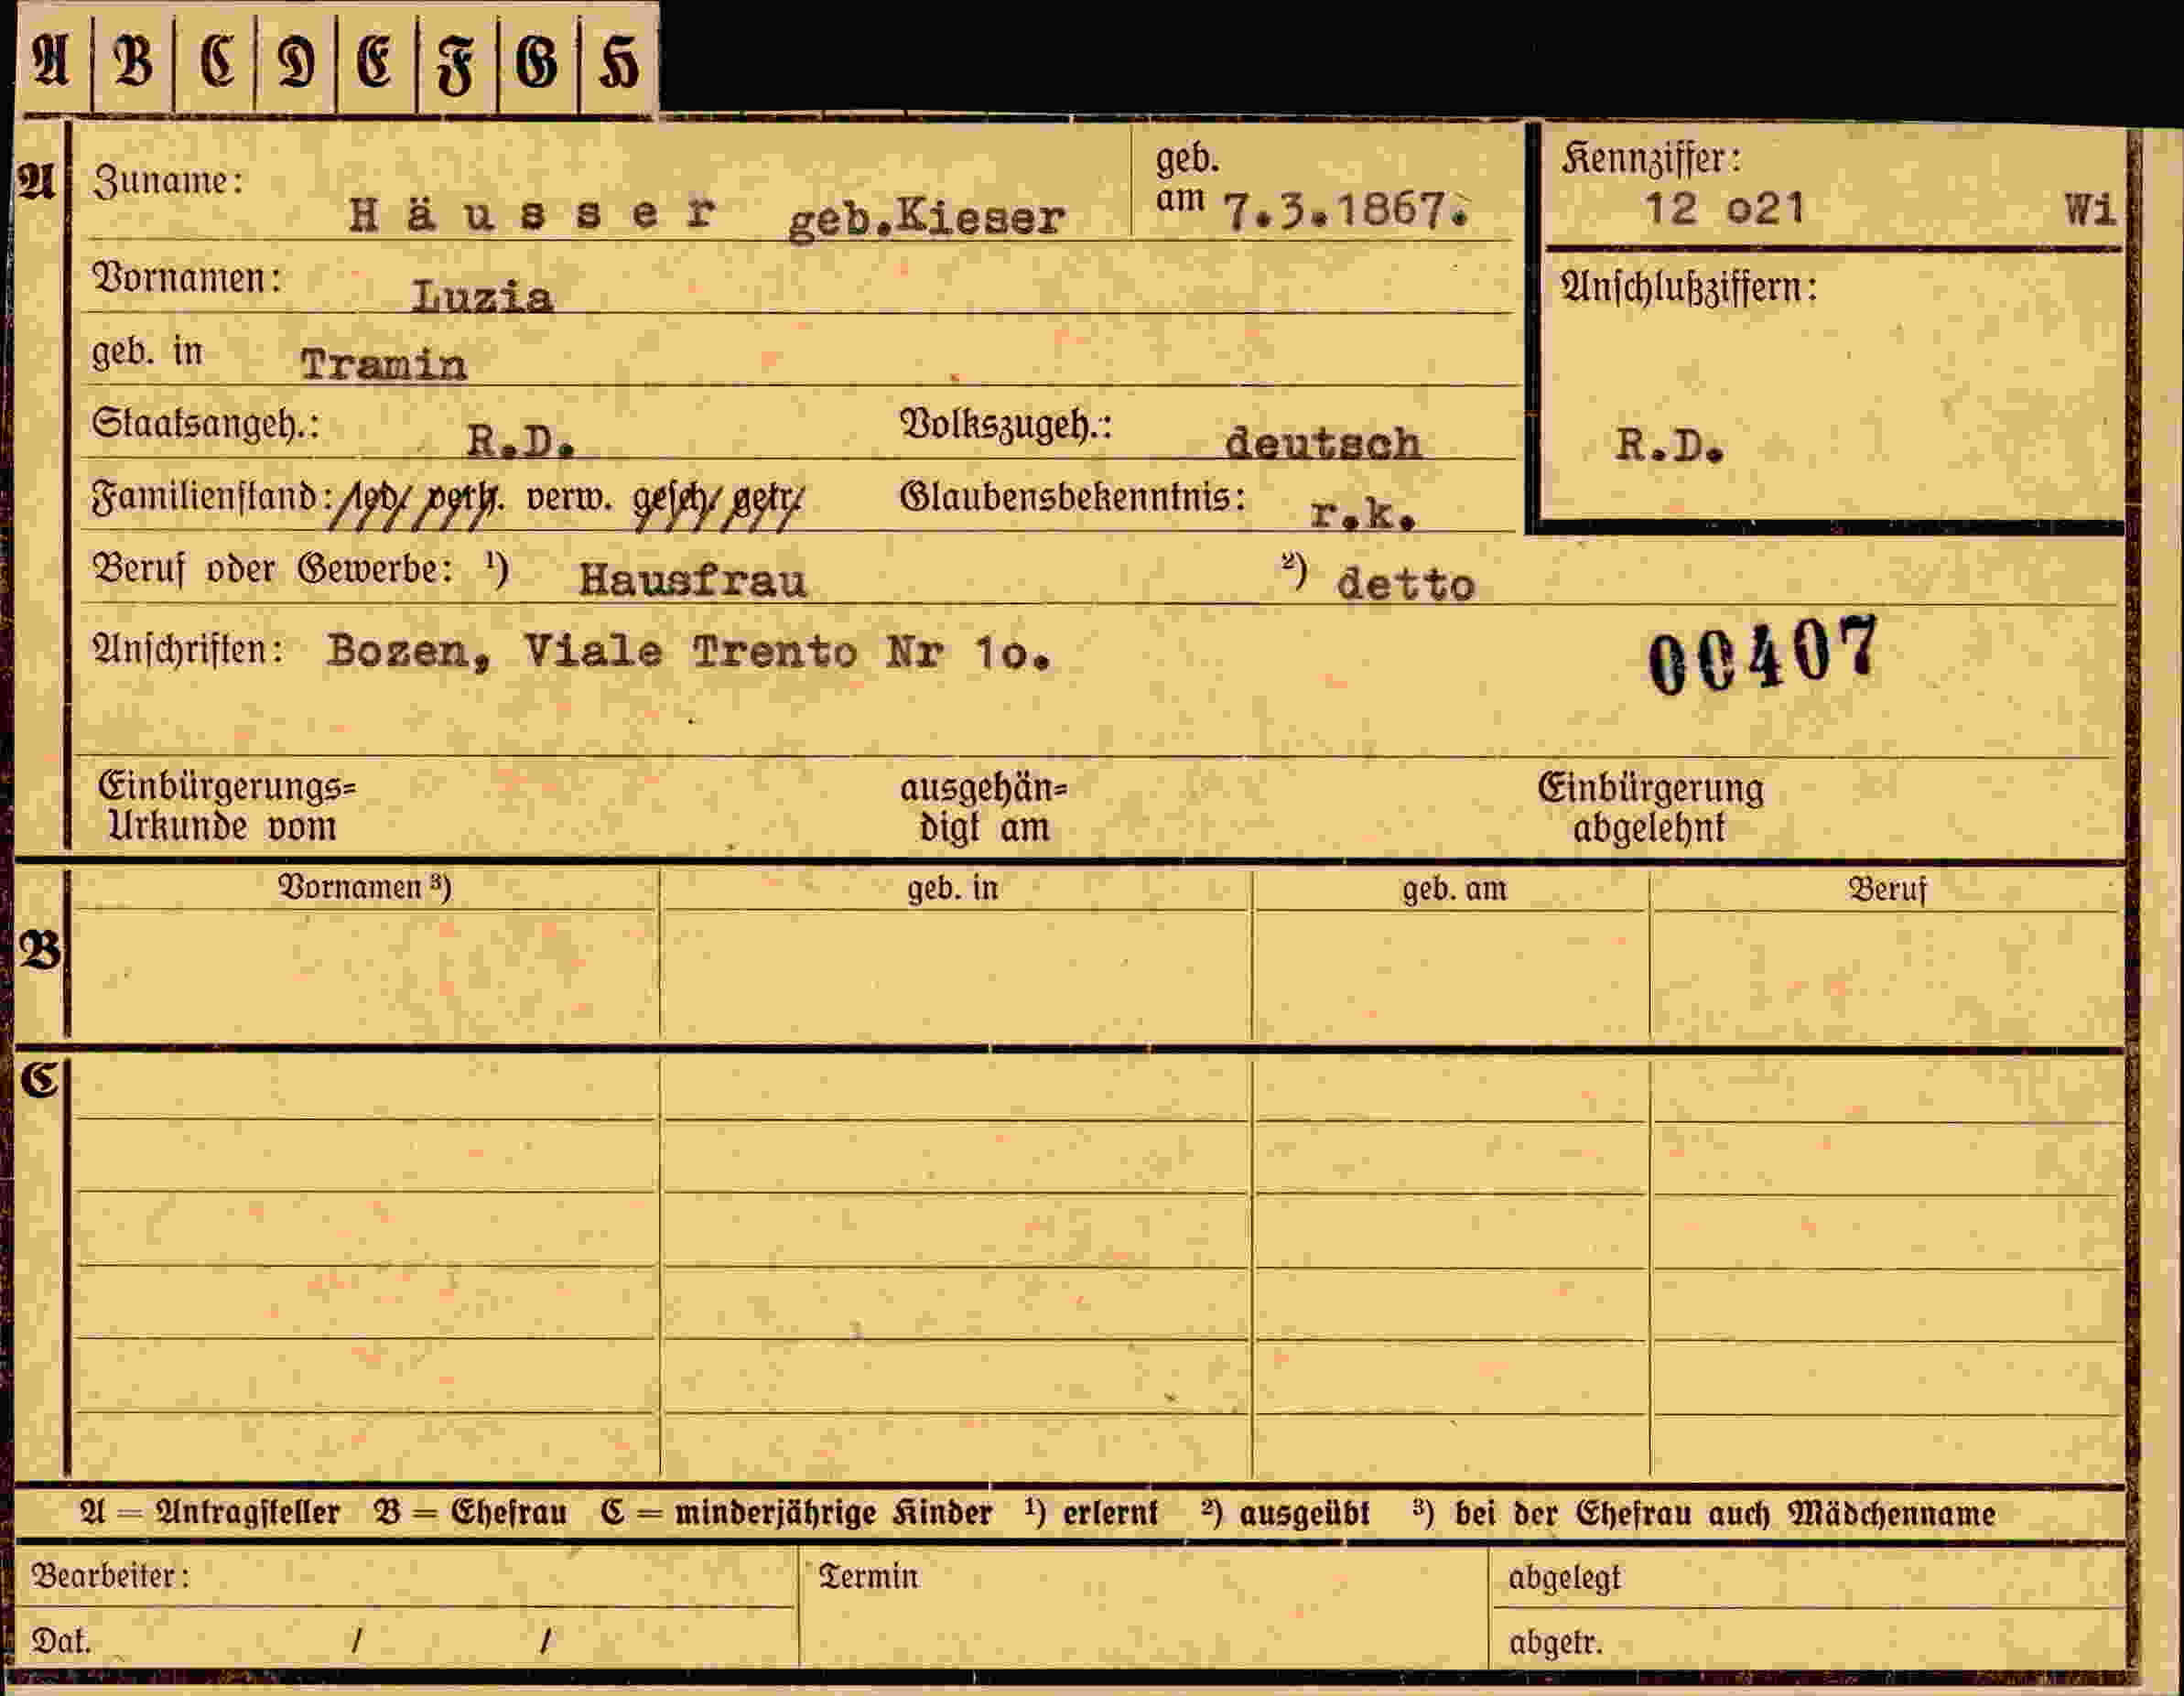 A B C D E F G H
A Zuname: Häusser geb.Kieser geb. am 7.3.1867. Kennziffer: 12 o21 Wi
Vornamen: Luzia Anschlußziffern:
geb. in Tramin
Staatsangeh.: R.D. Volkszugeh.: deutsch R.D.
Familienstand: led. verh. verw. gesch. getr. Glaubensbekenntnis: r.k.
Beruf oder Gewerbe: ¹) Hausfrau ²) detto
Anschriften: Bozen, Viale Trento Nr 1o. 00407
Einbürgerungs= ausgehän= Einbürgerung
Urkunde vom digt am abgelehnt
Vornamen ³) geb. in geb. am Beruf
B
C
A = Antragsteller B = Ehefrau C = minderjährige Kinder ¹) erlernt ²) ausgeübt ³) bei der Ehefrau auch Mädchenname
Bearbeiter: Termin abgelegt
Dat. / / abgetr.